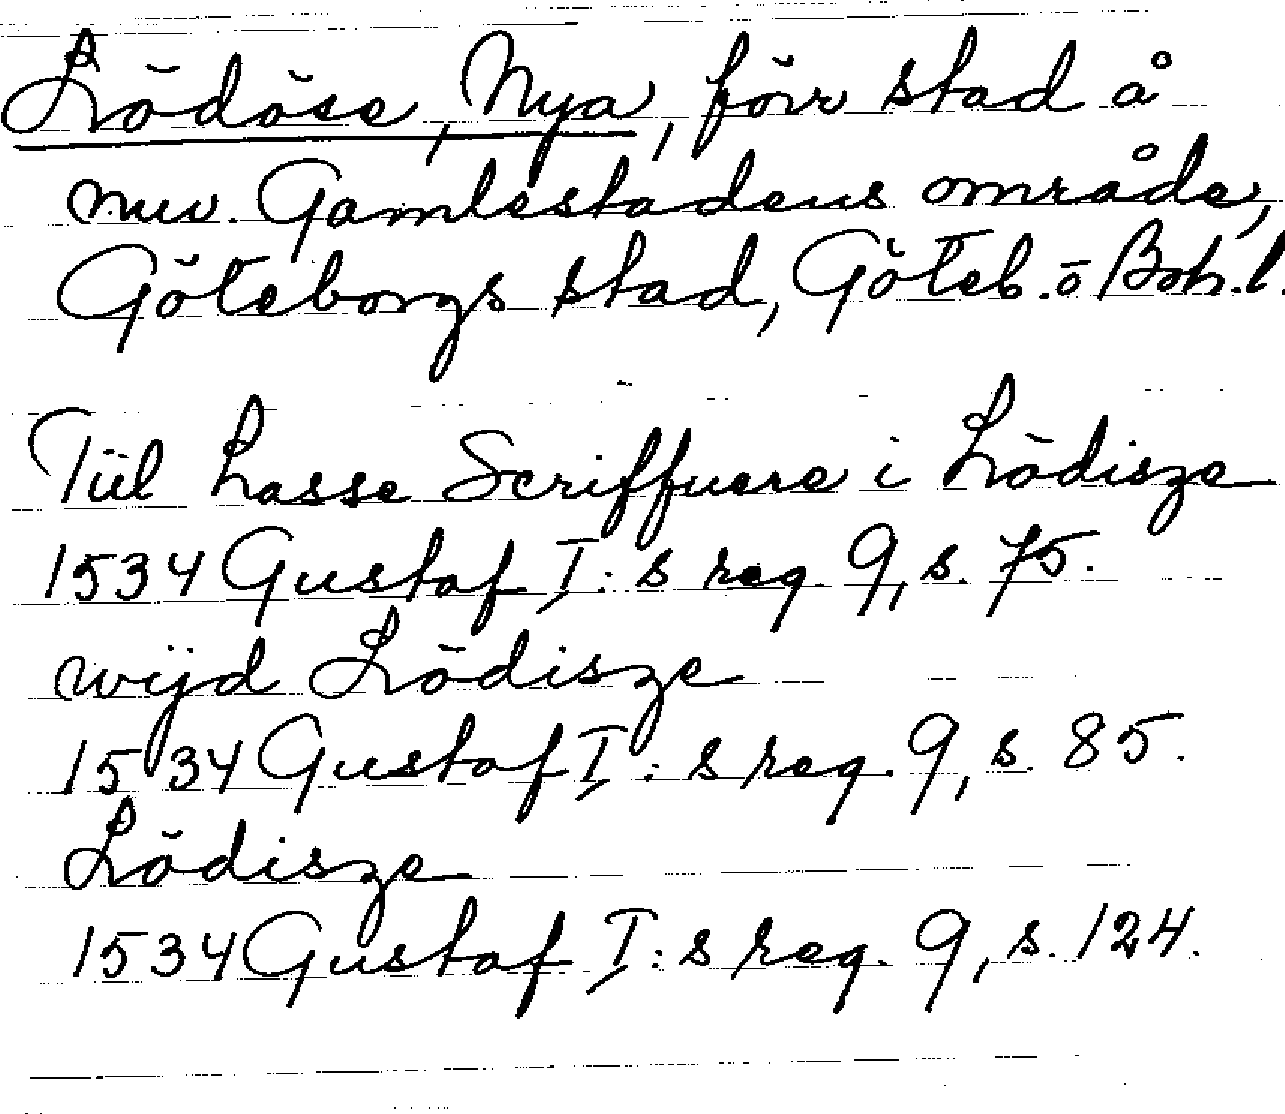 Lödöse, Nya, förr stad å
nuv. Gamlestadens område,
Göteborgs stad, Göteb. o Boh. l.
Tiil Lasse Scriffuere i Lödisze
1534 Gustaf I:s reg. 9, s. 75.
wijd Lödisze
1534 Gustaf I:s reg. 9, s. 85.
Lödisze
1534 Gustaf I:s reg. 9, s. 124.